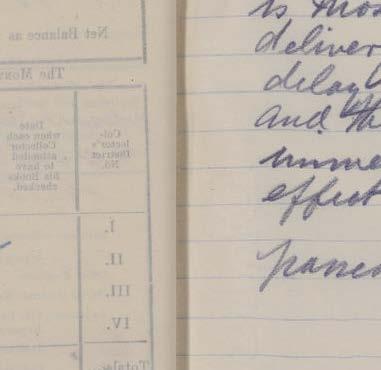 Net Balance as
The Mon
Col-
lector's
District
No.
Date
when each
Collector
attended
to have
his Books
checked.
I.
II.
III.
IV.
Totals
is
deliver
delay
and the
effect